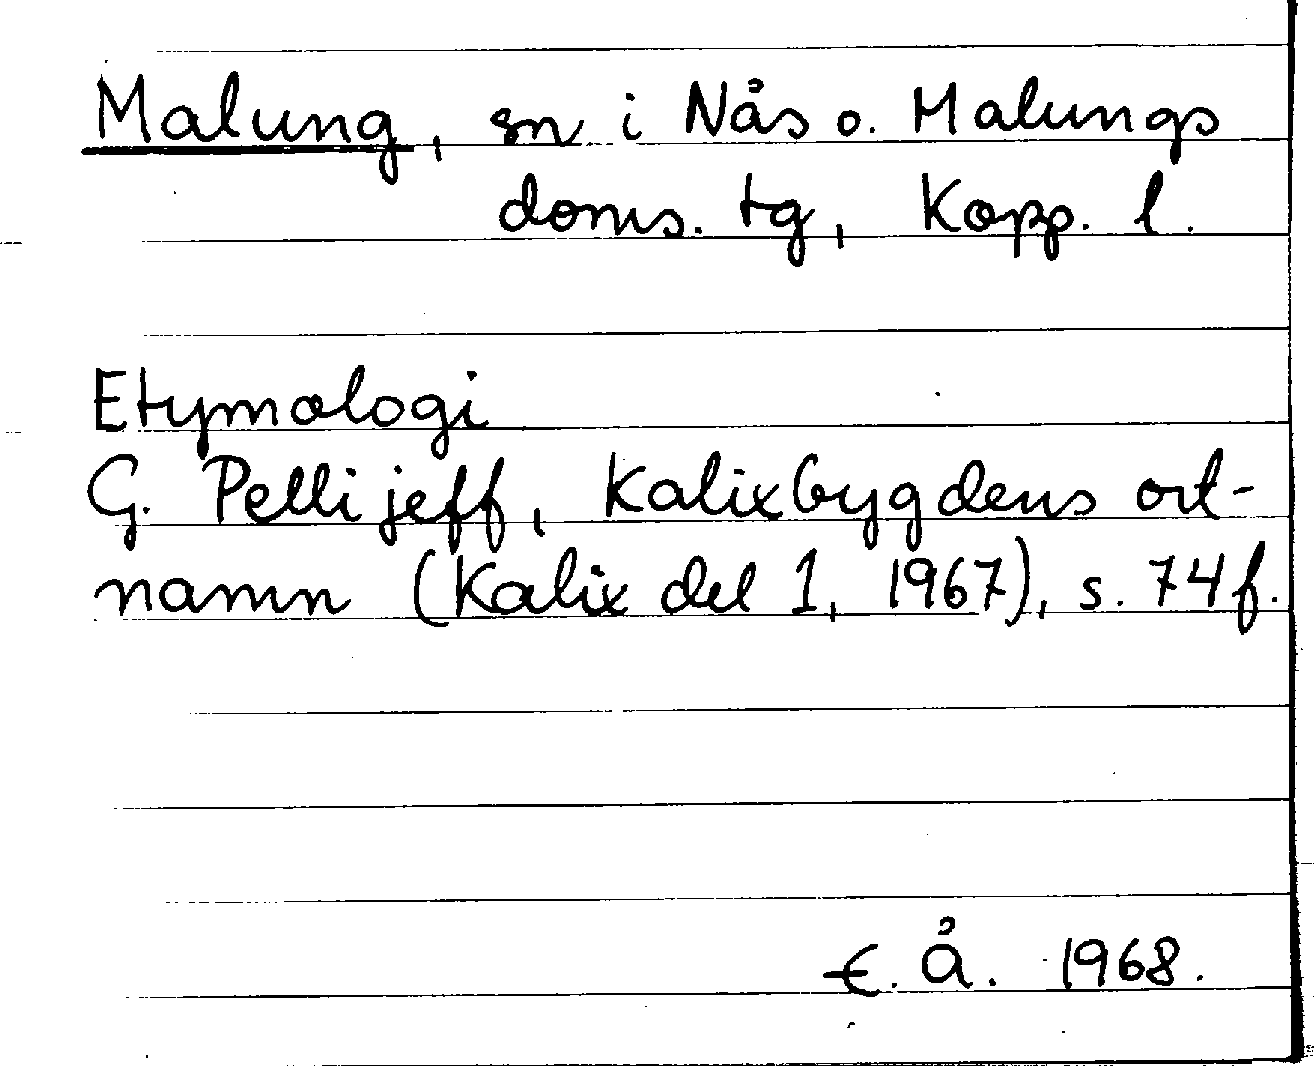 Malung, sn i Nås o. Malungs
doms. tg, Kopp. l.
Etymologi
G. Pellijeff, Kalixbygdens ort-
namn (Kalix del 1, 1967), s. 74f.
E. Å. 1968.